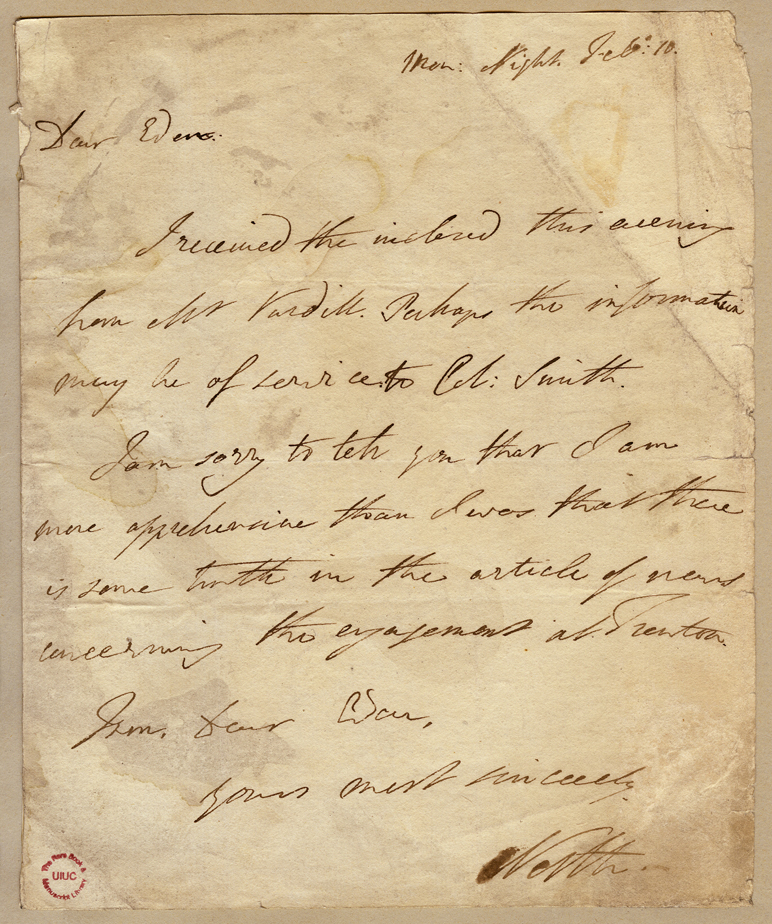 Mon: Night. Feb: 10.
Dear Eden.
I received the inclosed this evening
from Mr Vardill. Perhaps the information
may be of service to Col: Smith.
I am sorry to tell you that I am
more apprehensive than I was that there
is some truth in the article of news
concerning the engagement at Trenton.
I am, Dear Eden,
yours most sincerely,
North.
The Rare Book &
UIUC
Manuscript Library